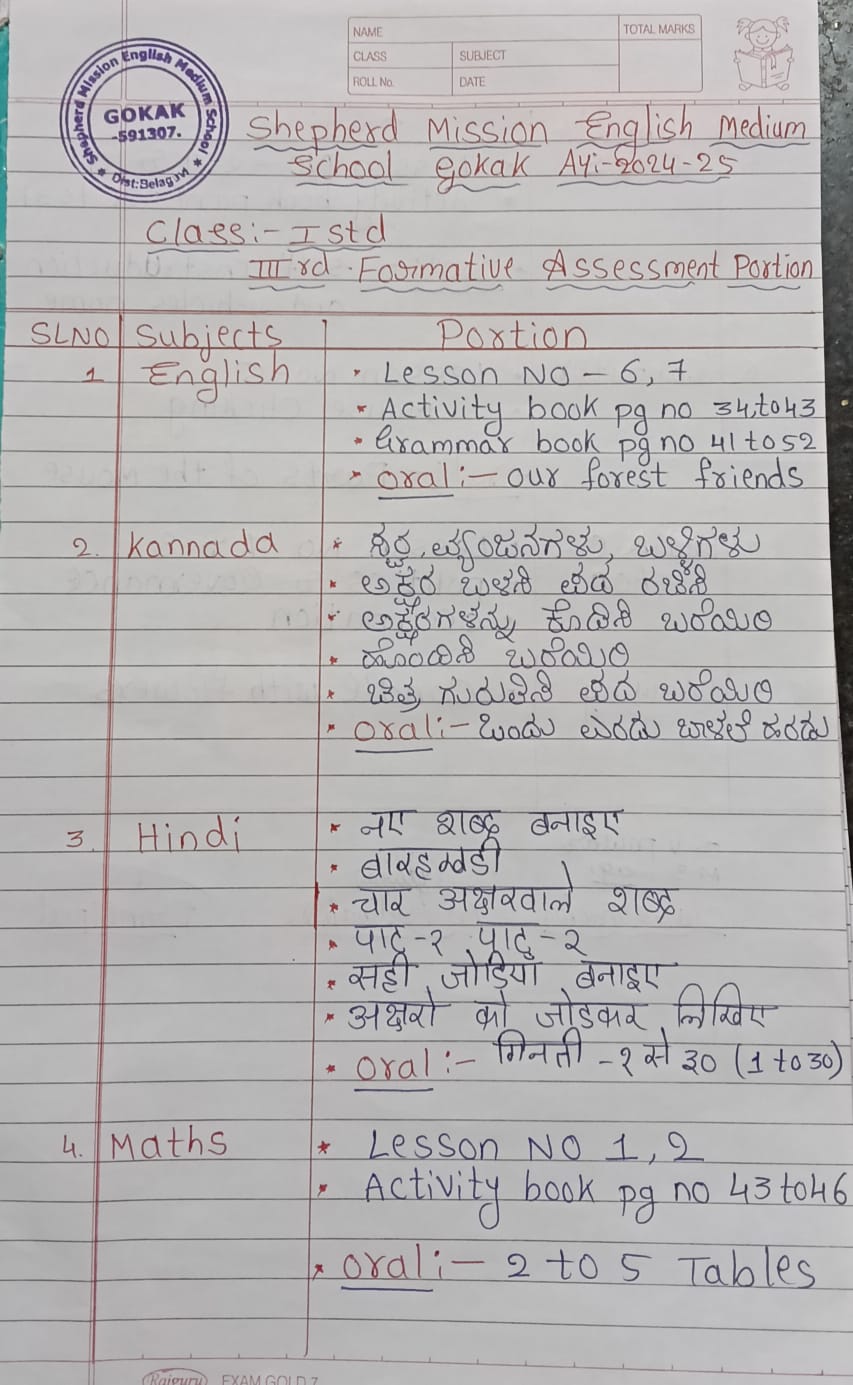 NAME
TOTAL MARKS
CLASS
SUBJECT
ROLL No.
DATE
Shepherd Mission English Medium School
GOKAK
-591307.
Dist:Belagavi
Shepherd Mission English Medium
School Gokak Ay:-2024-25
Class:- I std
III rd Formative Assessment Portion
SLNO Subjects Portion
1 English • Lesson NO - 6, 7
• Activity book pg no 34,to43
• Grammar book pg no 41 to 52
• Oral:- our forest friends
2. Kannada • ಸ್ವರ, ವ್ಯಂಜನಗಳು, ಬಳ್ಳಿಗಳು
• ಅಕ್ಷರ ಬಳಸಿ ಪದ ರಚಿಸಿ
• ಅಕ್ಷರಗಳನ್ನು ಕೂಡಿಸಿ ಬರೆಯಿರಿ
• ಹೊಂದಿಸಿ ಬರೆಯಿರಿ
• ಚಿತ್ರ ಗುರುತಿಸಿ ಪದ ಬರೆಯಿರಿ
• Oral:- ಒಂದು ಎರಡು ಬಾಳೆಲೆ ಹರಡು
3. Hindi • नए शब्द बनाइए
• बारहखडी
• चार अक्षरवाले शब्द
• पाठ-१ पाठ-२
• सही जोडिया बनाइए
• अक्षरो को जोडकर लिखिए
• Oral:- गिनती - १ से ३० (1 to 30)
4. Maths • Lesson NO 1, 2
• Activity book pg no 43 to46
• Oral:- 2 to 5 Tables
Rajguru EXAM GOLD 7